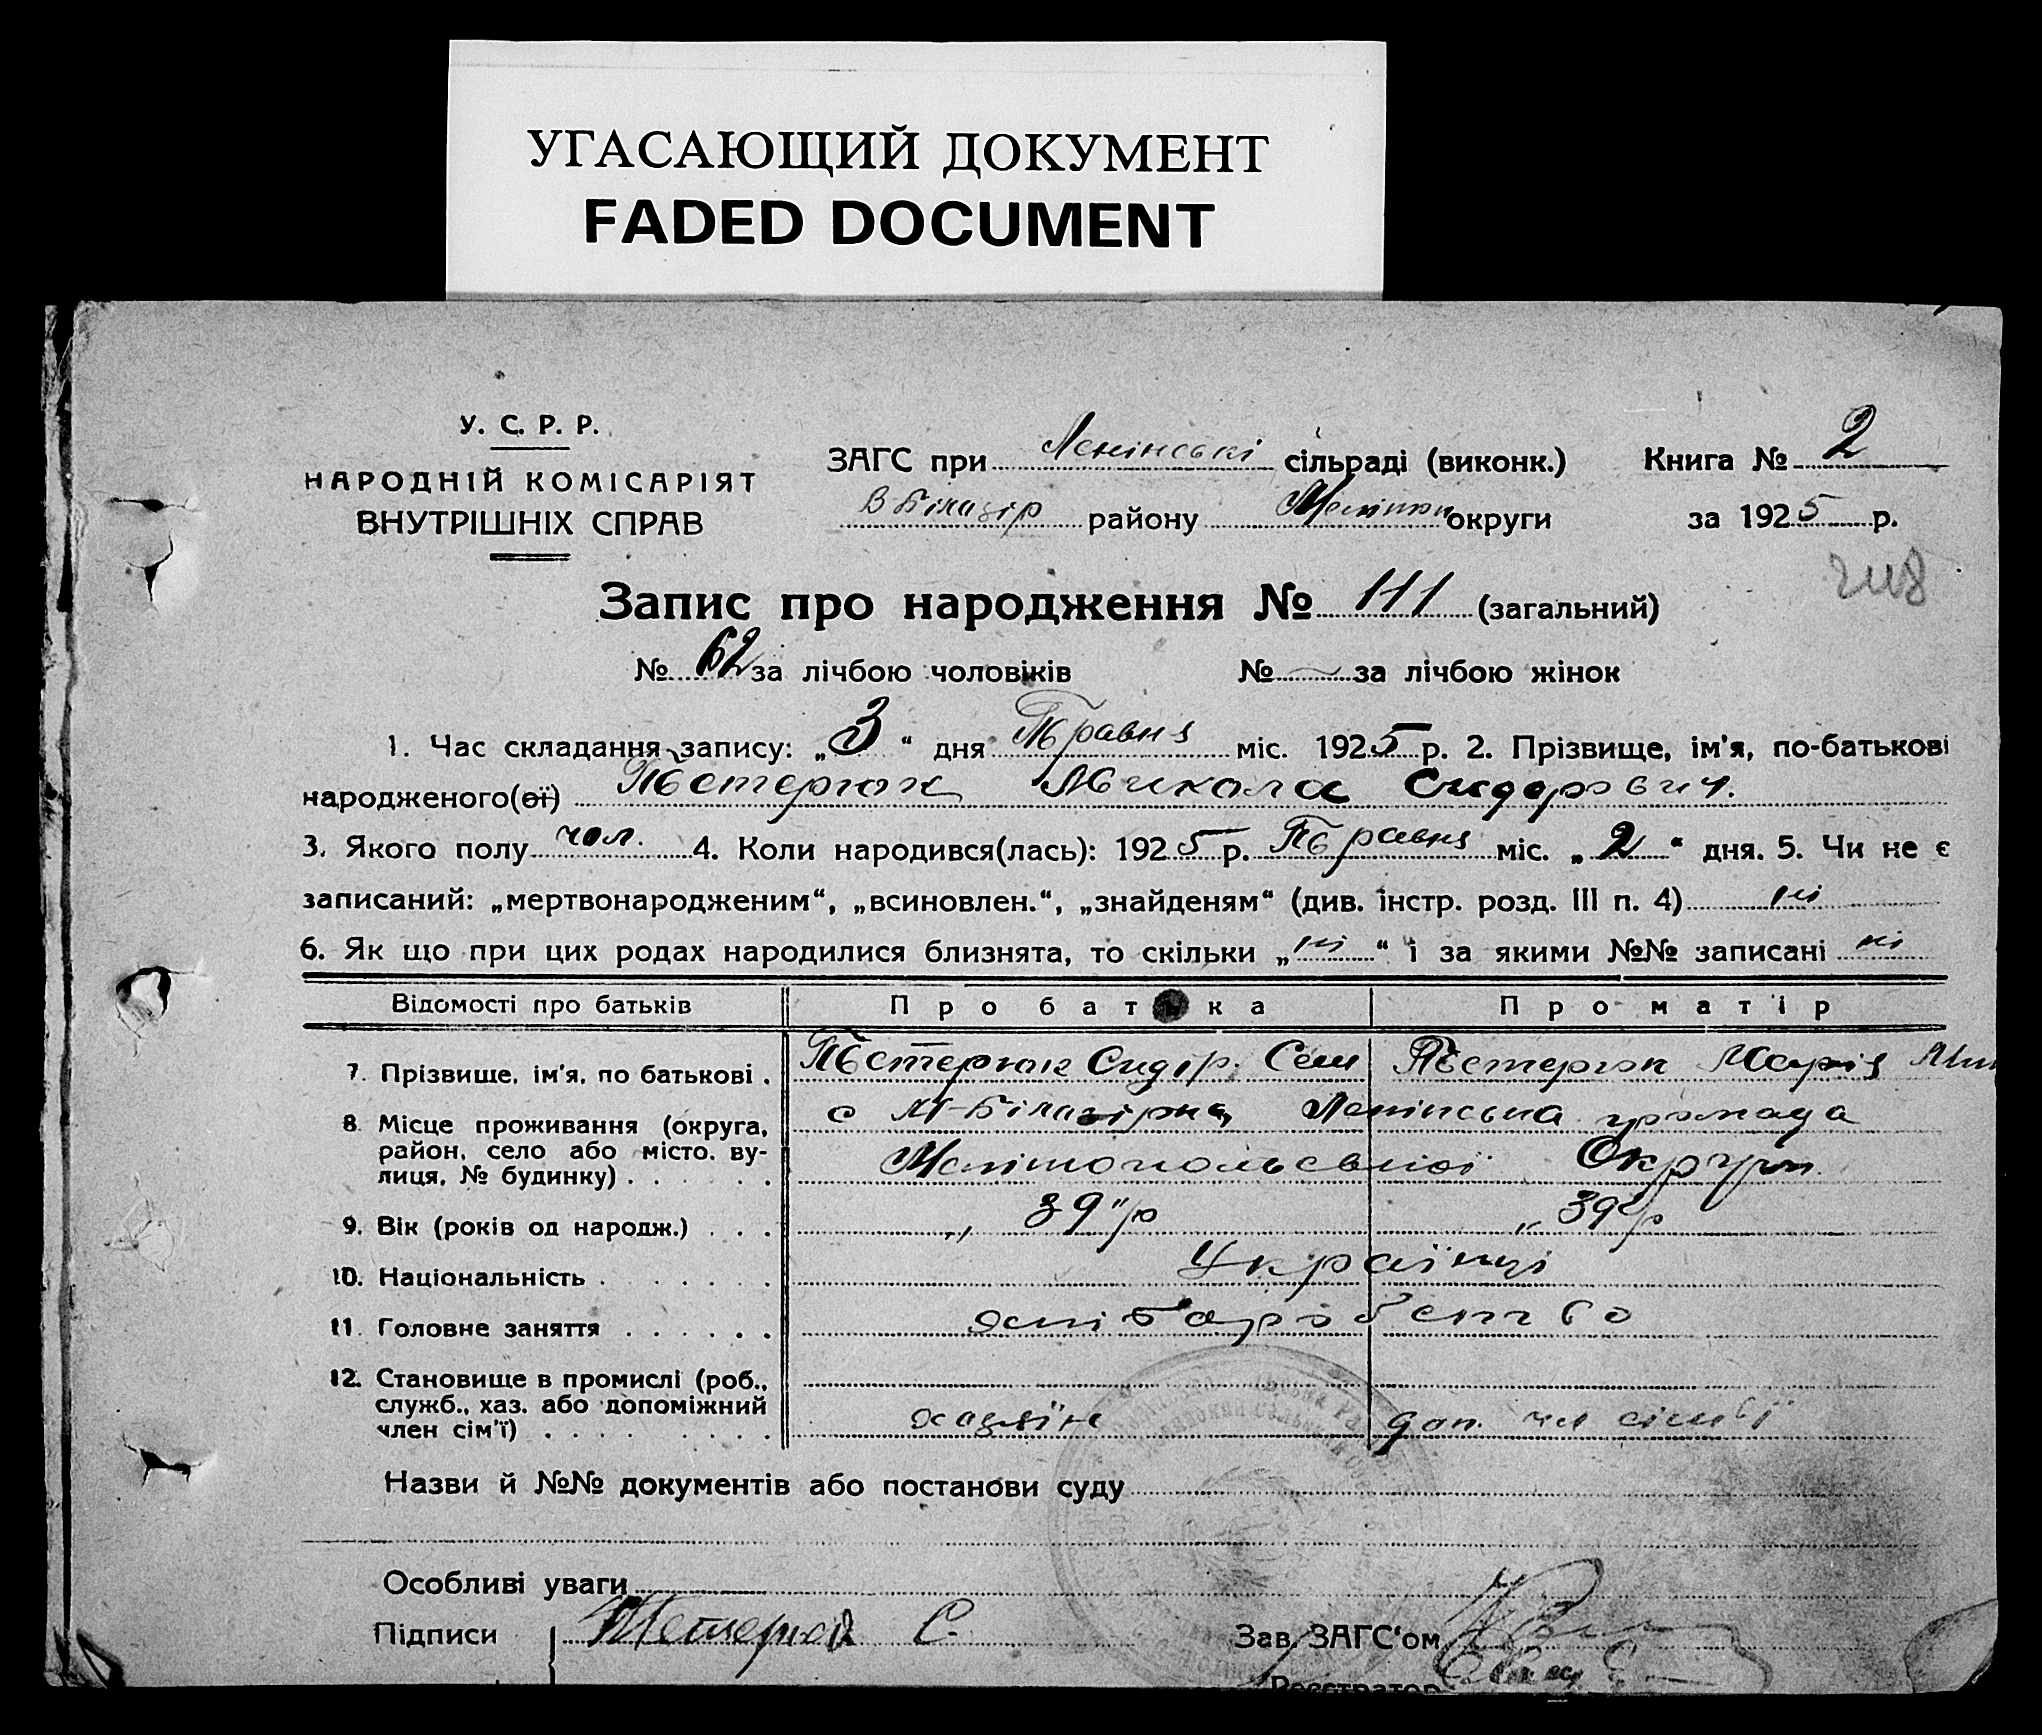 УГАСАЮЩИЙ ДОКУМЕНТ
FADED DOCUMENT
У. С. Р. Р.
НАРОДНІЙ КОМІСАРІЯТ
ВНУТРІШНІХ СПРАВ
ЗАГС при Ленінські сільраді (виконк.) Книга № 2
В Білозір району Мелітоп округи за 1925 р.
248
Запис про народження № 111 (загальний)
№ 62 за лічбою чоловіків № — за лічбою жінок
1. Час складання запису: „3“ дня Травня міс. 1925 р. 2. Прізвище, ім'я, по-батькові
народженого(ої) Тетерюк Микола Сидорович.
3. Якого полу чол. 4. Коли народився(лась): 1925 р. Травня міс. „2“ дня. 5. Чи не є
записаний: „мертвонародженим“, „всиновлен.“, „знайденям“ (див. інстр. розд. III п. 4) ні
6. Як що при цих родах народилися близнята, то скільки „ні“ і за якими №№ записані ні
Відомості про батьків Про батька Про матір
7. Прізвище, ім'я, по батькові . Тетерюк Сидір. Сем Тетерюк Марія
8. Місце проживання (округа, район, село або місто, вулиця, № будинку) . с Ленінська громада
Округи
9. Вік (років од народж.) . . . „39“ р „39“ р
10. Національність . Українці
11. Головне заняття . . . . . . хліборобство
12. Становище в промислі (роб., служб., хаз. або допоміжний член сім'ї) . . . . хазяїн доп. чл сімьї
Назви й №№ документів або постанови суду
Особливі уваги
Підписи Тетерюк С. Зав. ЗАГС'ом
Реєстратор